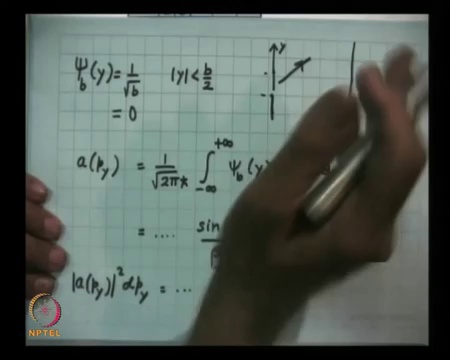 ψ_b(y) = 1/√b |y| < b/2 y
= 0
a(p_y) = 1/√(2πħ) ∫_{-∞}^{+∞} ψ_b(y)
= .... sin
|a(p_y)|² dp_y = ...
NPTEL